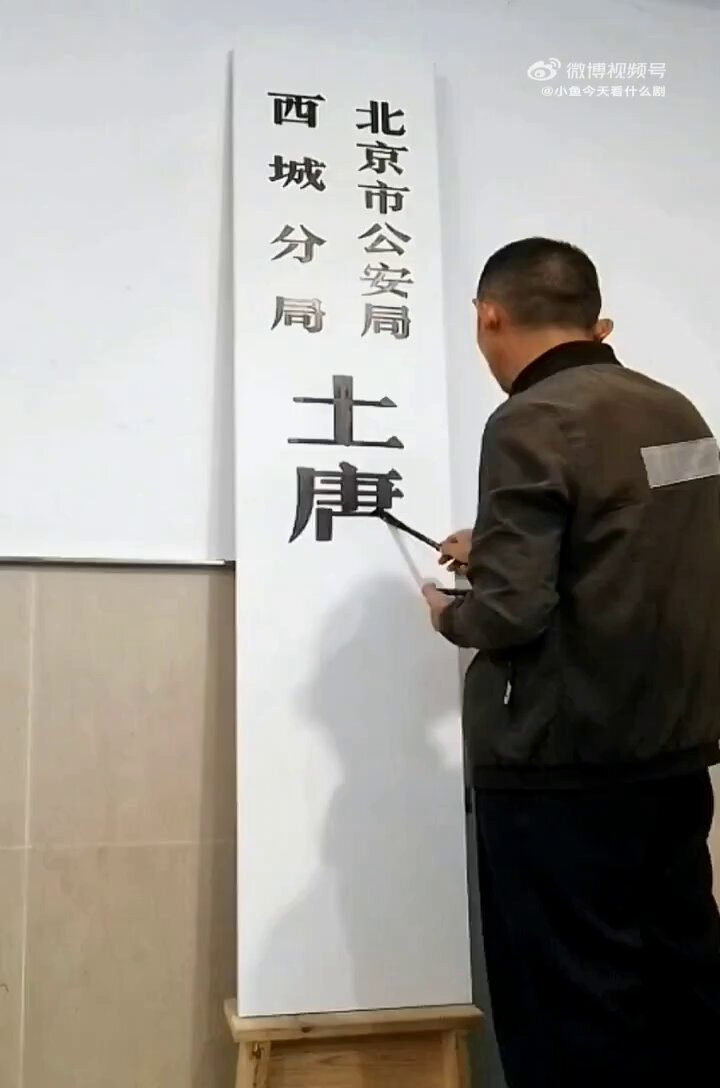 微博视频号
@小鱼今天看什么剧
北京市公安局
西城分局
土唐